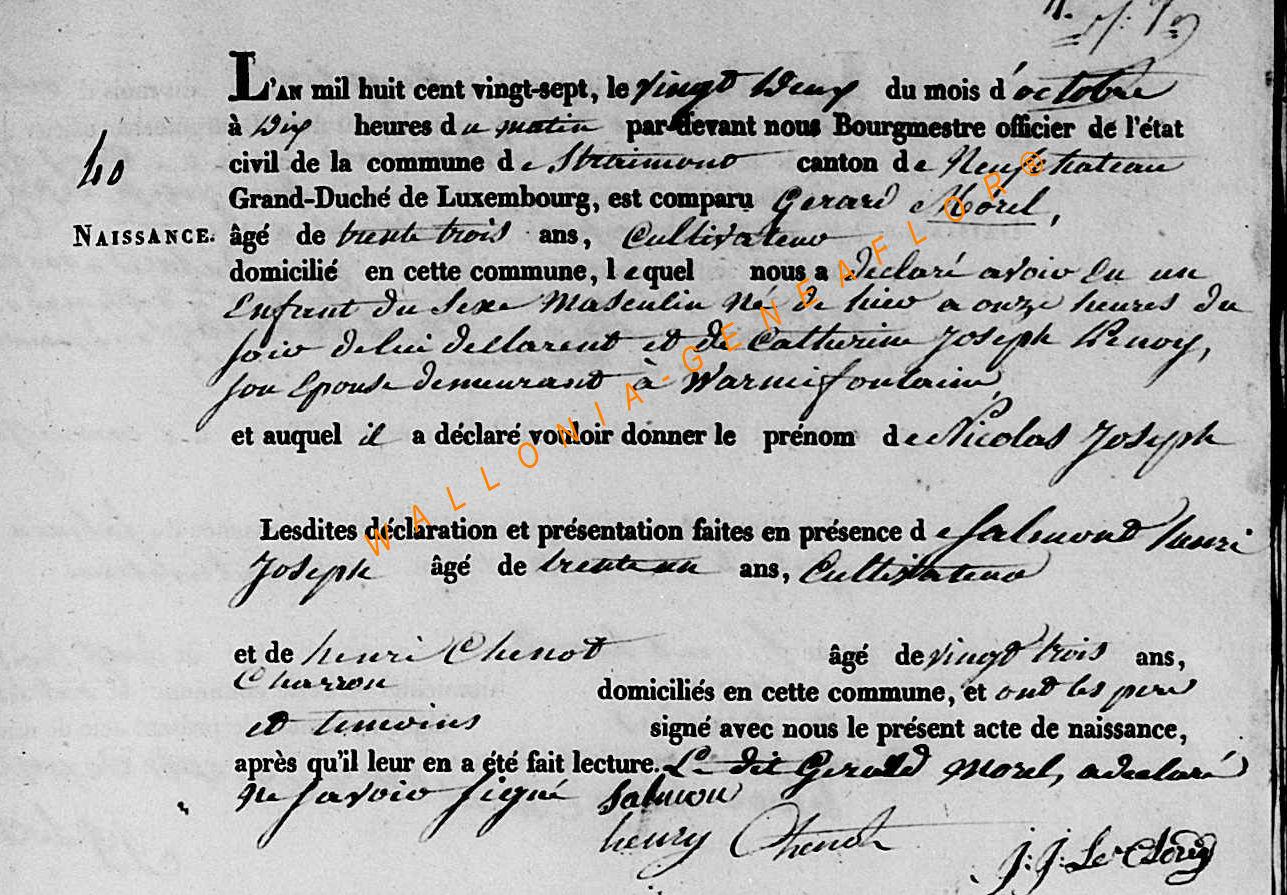 L'AN mil huit cent vingt-sept, le vingt Deux du mois d'octobre
à Dix heures du matin par-devant nous Bourgmestre officier de l'état
40
civil de la commune de Straimont canton de Neufchateau
Grand-Duché de Luxembourg, est comparu Gerard Morel,
NAISSANCE. âgé de trente trois ans, Cultivateur
domicilié en cette commune, lequel nous a declaré avoir Eu un
Enfant du Sexe Masculin Né de hier a onze heures du
soir de lui declarent et de Catherine Joseph
son Epouse demeurant à Warmifontaine
et auquel il a déclaré vouloir donner le prénom de Nicolas Joseph
Lesdites déclaration et présentation faites en présence de Salmont henri
Joseph âgé de trente un ans, Cultivateur
et de henri Chenot âgé de vingt trois ans,
Charron domiciliés en cette commune, et ont les pere
et temoins signé avec nous le présent acte de naissance,
après qu'il leur en a été fait lecture. Le dit Morel, a declaré
Ne savoir signé Salmon
henry Chenot
J: J: Le
WALLONIA-GENEAFLOR®